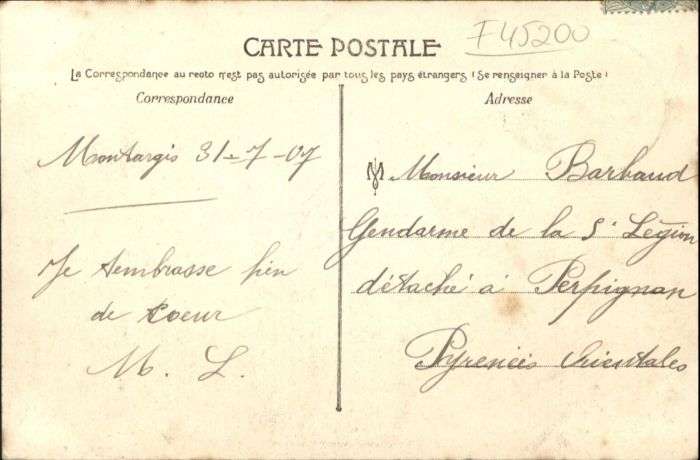 F45200
CARTE POSTALE
La Correspondance au recto n'est pas autorisée par tous les pays étrangers (Se renseigner à la Poste)
Correspondance
Montargis 31-7-07
Je tembrasse bien
de coeur
M. L.
Adresse
M Monsieur Barbaud
Gendarme de la 5e Légion
détaché à Perpignan
Pyrenées Orientales